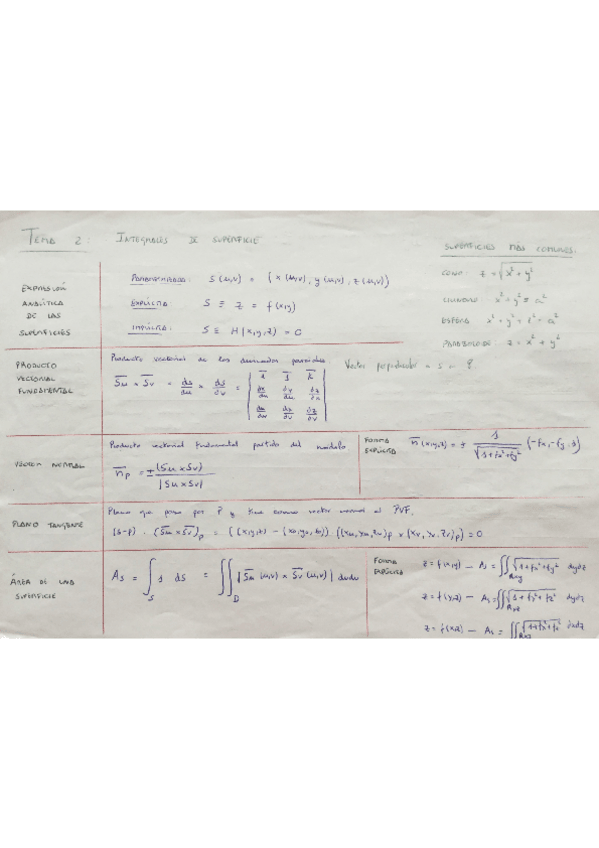 TEMA 2: INTEGRALES DE SUPERFICIE
SUPERFICIES MAS COMUNES:
CONO: z = √x² + y²
CILINDRO: x² + y² = a²
ESFERA: x² + y² + z² = a²
PARABOLOIDE: z = x² + y²
EXPRESIÓN ANALÍTICA DE LAS SUPERFICIES
PARAMETRIZADA: S(u,v) = (x(u,v), y(u,v), z(u,v))
EXPLÍCITA: S ≡ z = f(x,y)
IMPLÍCITA: S ≡ H(x,y,z) = 0
PRODUCTO VECTORIAL FUNDAMENTAL
Producto vectorial de las derivadas parciales
Vector perpendicular a S en P.
Su × Sv = ds/du × ds/dv = | i j k |
VECTOR NORMAL
Producto vectorial fundamental partido del modulo
np = ± (Su × Sv) / |Su × Sv|
FORMA EXPLÍCITA
n(x,y,z) = ± 1 / √1+fx²+fy² (-fx, -fy, 1)
PLANO TANGENTE
Plano que pasa por P y tiene como vector normal al PVF.
(s-p) · (Su × Sv)p = ((x,y,z) - (x0,y0,z0)) · ((xu, yu, zu)p × (xv, yv, zv)p) = 0
ÁREA DE UNA SUPERFICIE
As = ∫S 1 dS = ∬D |Su(u,v) × Sv(u,v)| dudv
FORMA EXPLÍCITA
z = f(x,y) - As = ∬Rxy √1+fx²+fy²
z = f(y,z) - As = ∬Ryz
z = f(x,z) - As = ∬Rxz